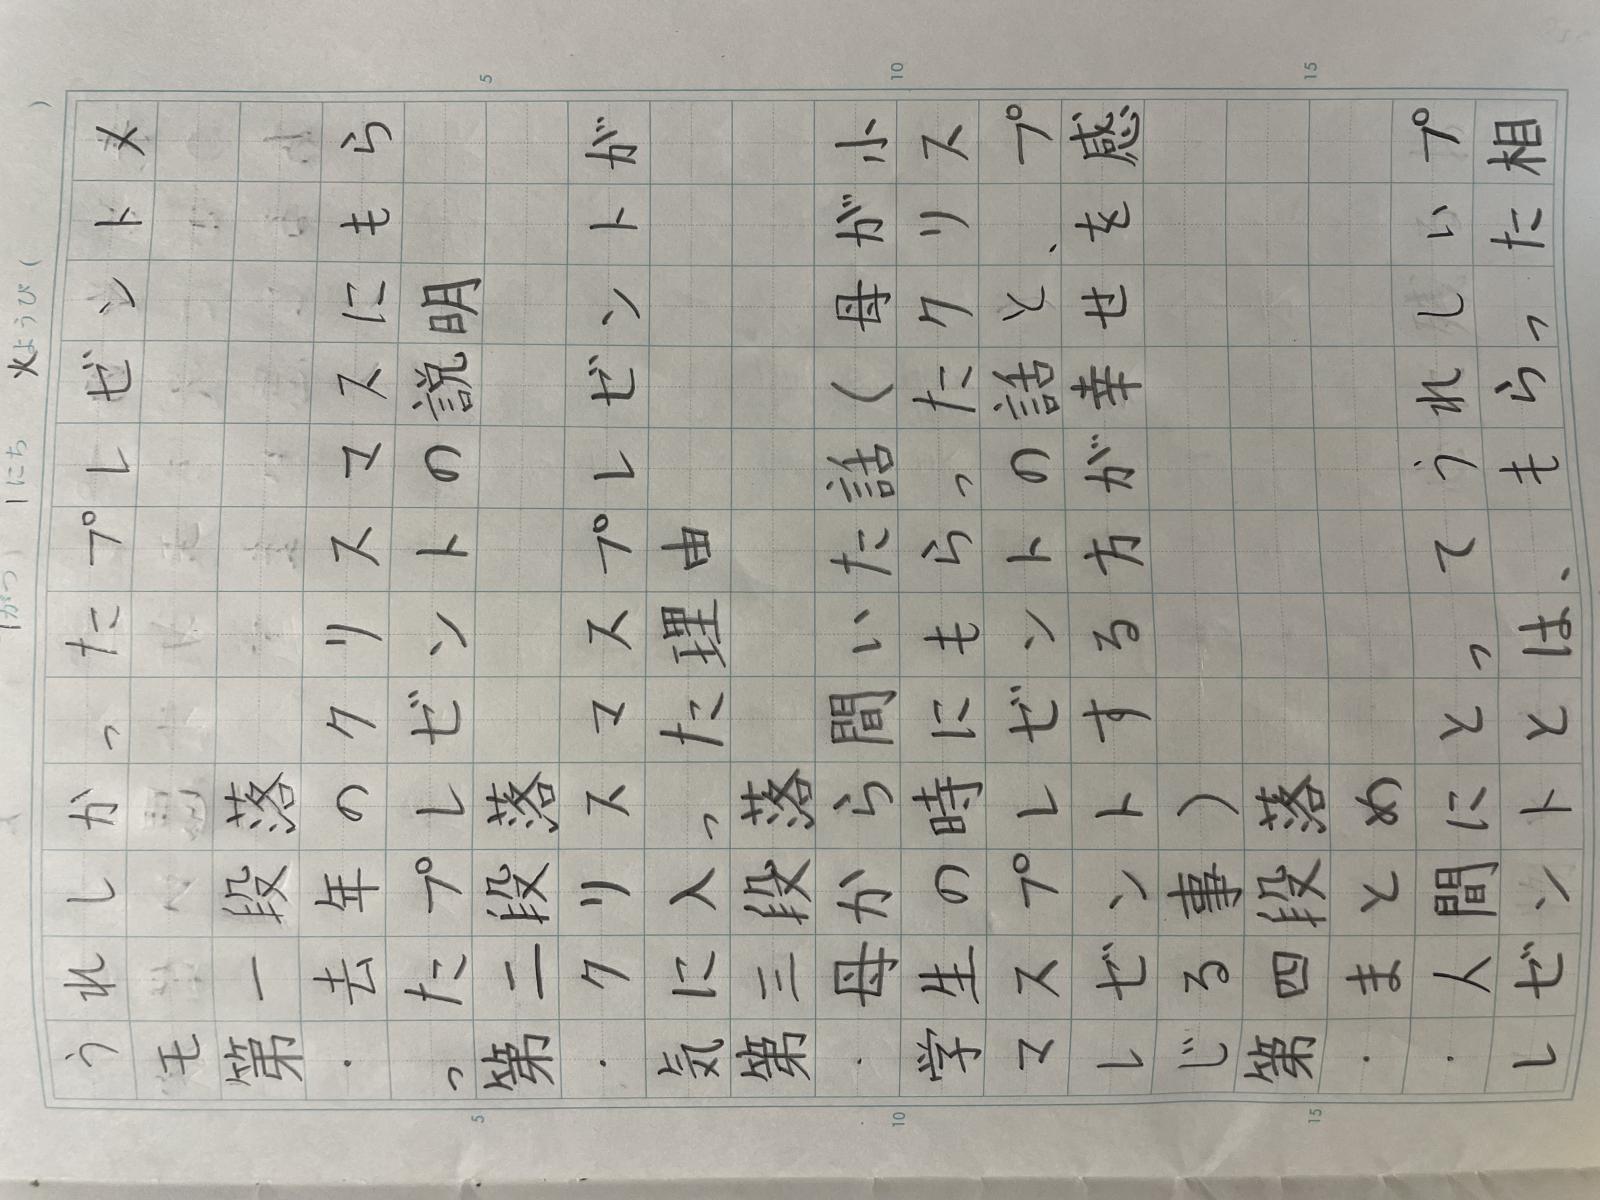 1がつ 1にち 火ようび( )
うれしかったプレゼントメ
モ
第一段落
・去年のクリスマスにもら
5 ったプレゼントの説明 5
第二段落
・クリスマスプレゼントが
気に入った理由
第三段落
10 ・母から間いた話(母が小 10
学生の時にもらったクリス
マスプレゼントの話と、プ
レゼントする方が幸せを感
じる事)
15 第四段落 15
・まとめ
・人間にとってうれしいプ
レゼントとは、もらった相